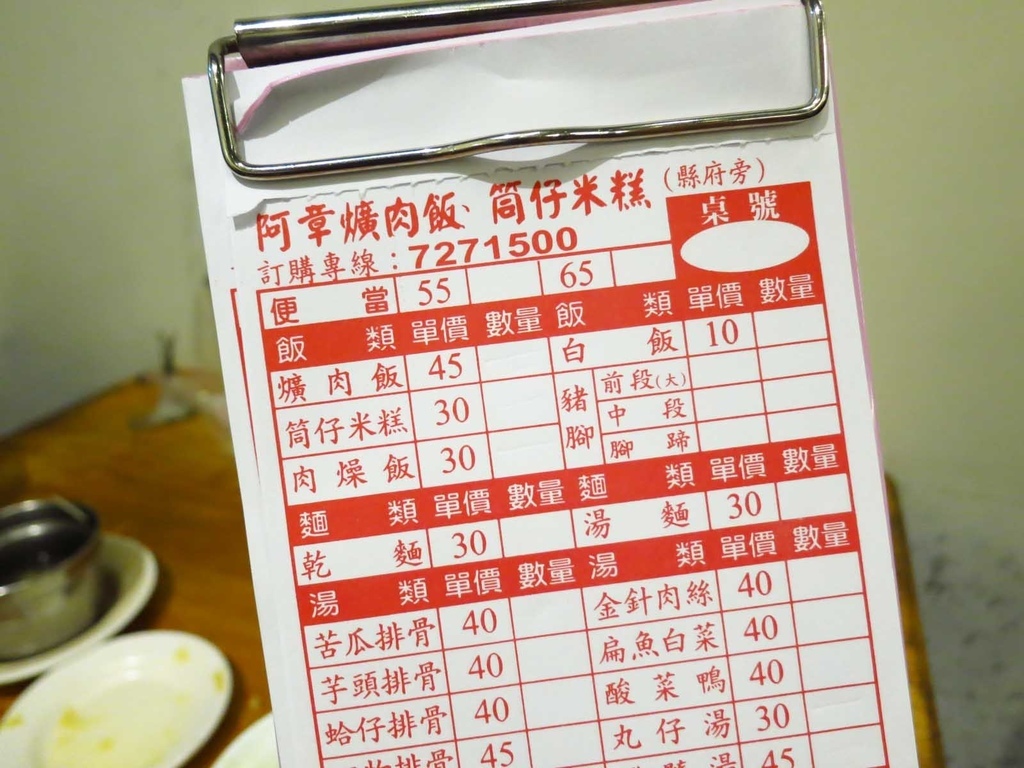 阿章爌肉飯、筒仔米糕(縣府旁)
訂購專線:7271500
桌號
便當 55 65
飯類 單價 數量 飯類 單價 數量
爌肉飯 45 白飯 10
筒仔米糕 30 豬腳 前段(大)
中段
肉燥飯 30 腳蹄
麵類 單價 數量 麵類 單價 數量
乾麵 30 湯麵 30
湯類 單價 數量 湯類 單價 數量
苦瓜排骨 40 金針肉絲 40
芋頭排骨 40 扁魚白菜 40
蛤仔排骨 40 酸菜鴨 40
排骨 45 丸仔湯 30
湯 45